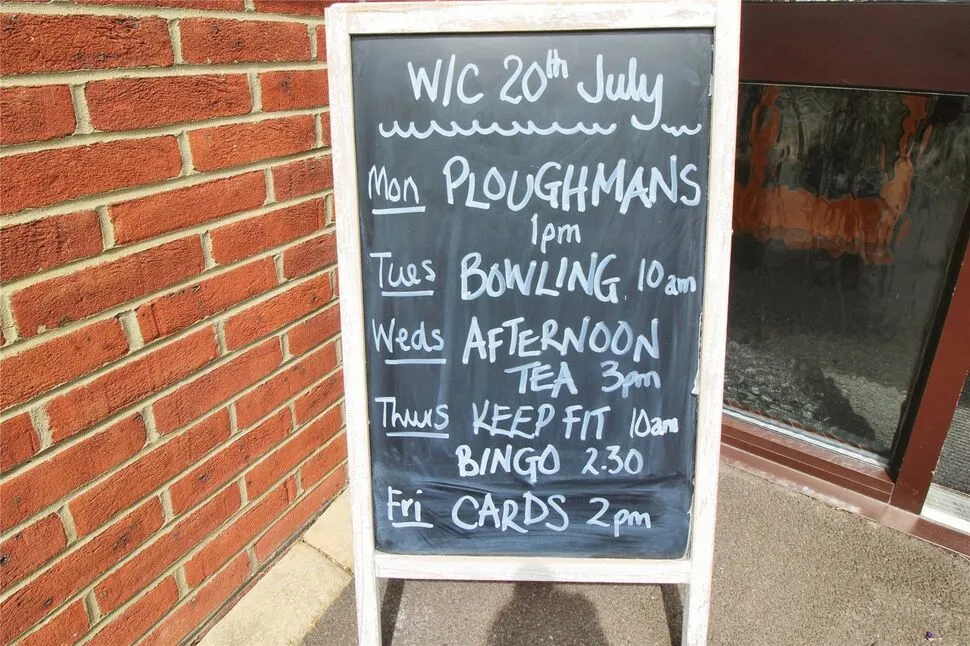 W/C 20th July
Mon PLOUGHMANS
1pm
Tues BOWLING 10am
Weds AFTERNOON
TEA 3pm
Thurs KEEP FIT 10am
BINGO 2.30
Fri CARDS 2pm